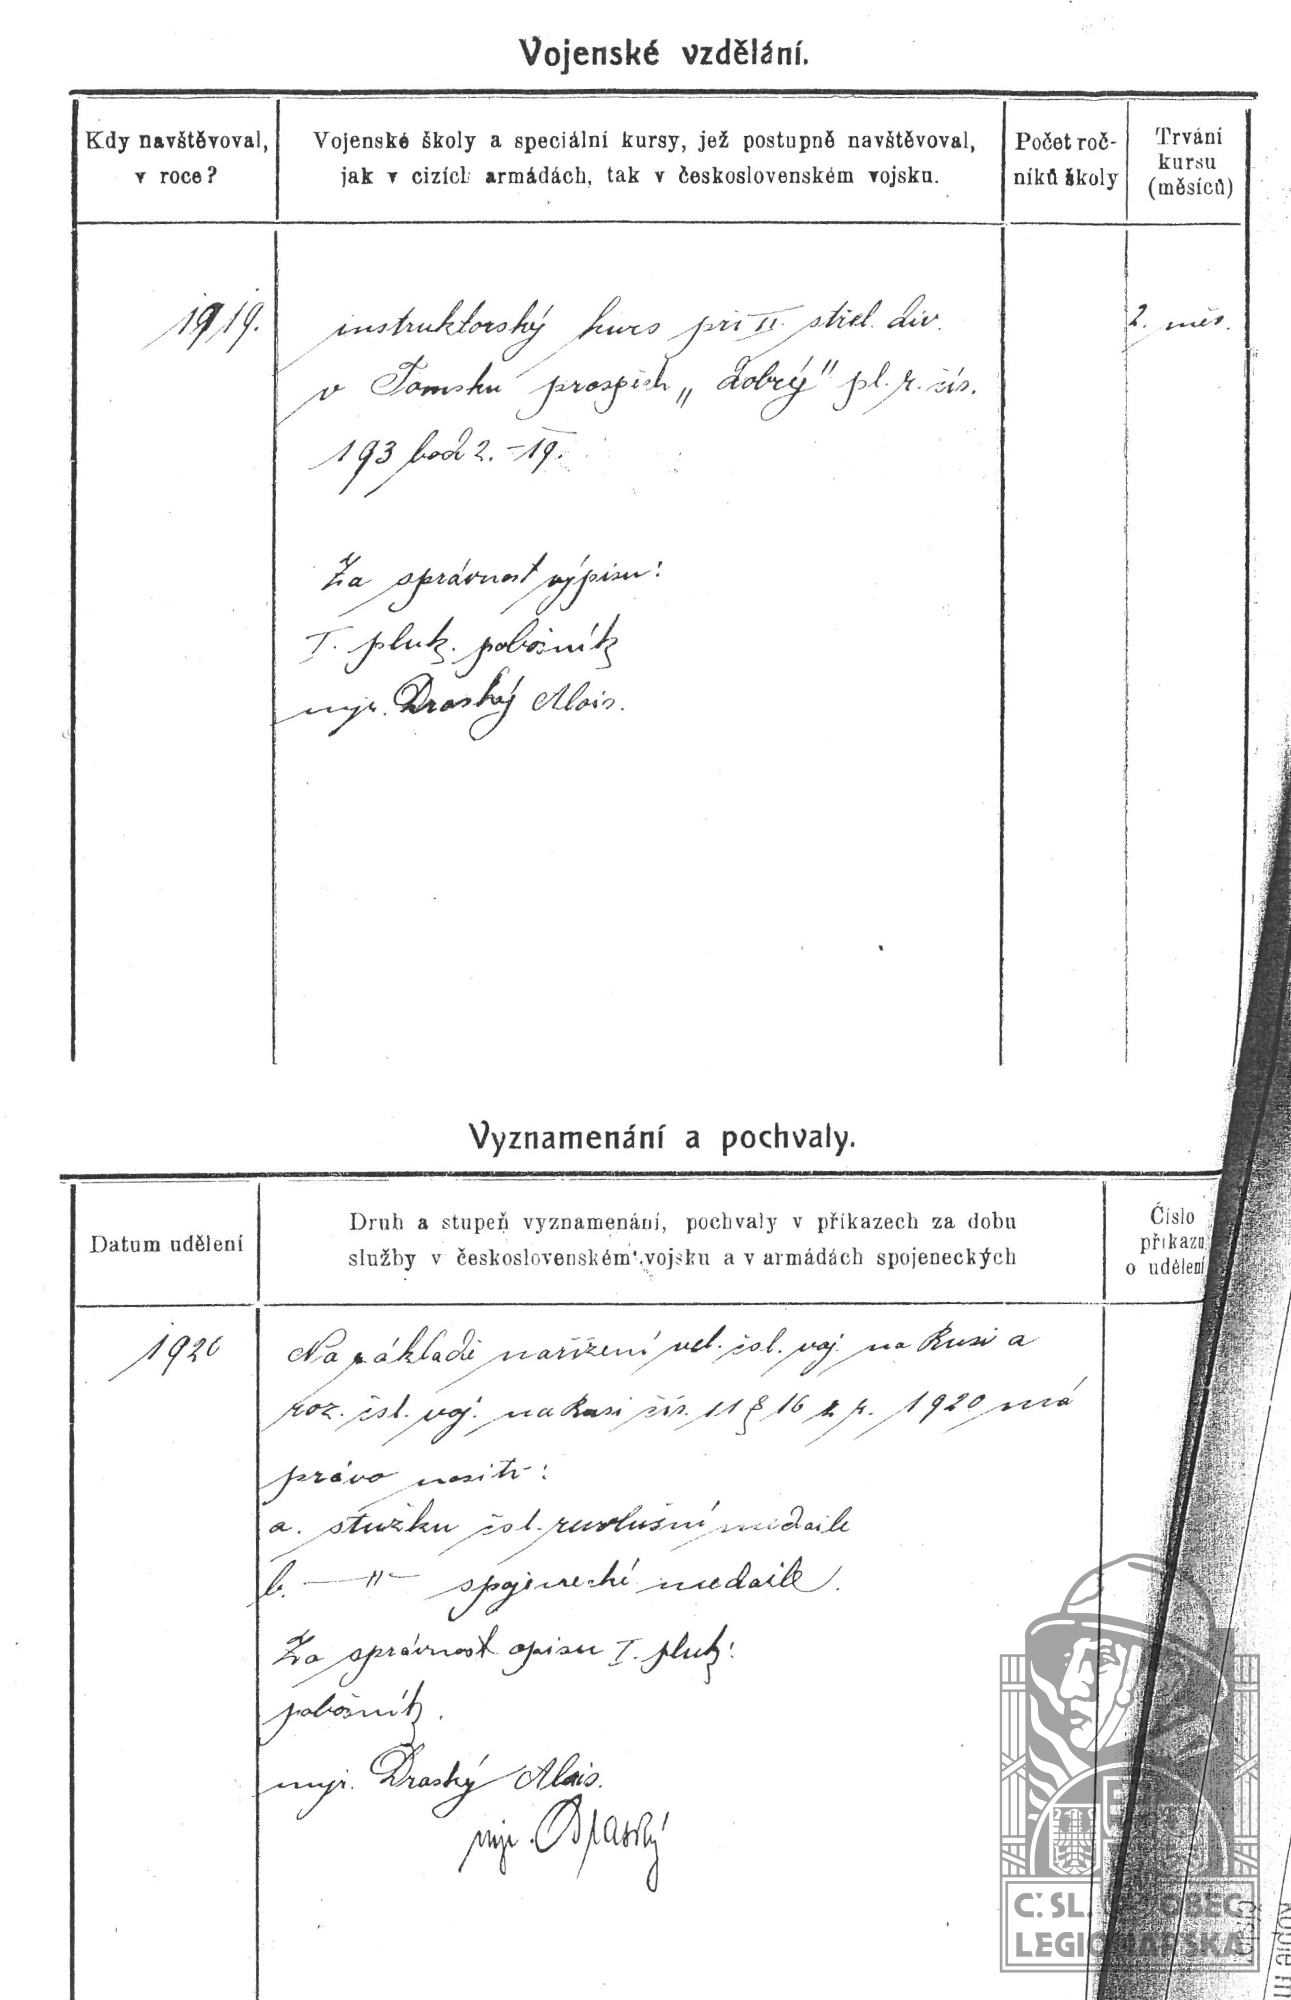 Vojenské vzdělání.
Kdy navštěvoval,
v roce?
Vojenské školy a speciální kursy, jež postupně navštěvoval,
jak v cizích armádách, tak v československém vojsku.
Počet roč-
níků školy
Trvání
kursu
(měsíců)
1919.
instruktorský kurs při II. střel. div.
2. měs.
v Tomsku prospěch „dobrý" pl. r. čís.
193 bod 2. -19.
Za správnost výpisu:
I. pluk. pobočník
mjr. Draský Alois.
Vyznamenání a pochvaly.
Datum udělení
Druh a stupeň vyznamenání, pochvaly v příkazech za dobu
služby v československém vojsku a v armádách spojeneckých
Číslo
příkazu
o udělení
1920
Na základě nařízení vel. čsl. voj. na Rusi a
roz. čsl. voj. na Rusi čís. 11 § 16 z r. 1920 má
právo nositi:
a. stužku čsl. revoluční medaile
b. —"— spojenecké medaile.
Za správnost opisu I. pluk:
pobočník.
mjr. Draský Alois.
mjr. Draský
Č. SL. OBEC
LEGIONÁŘSKÁ